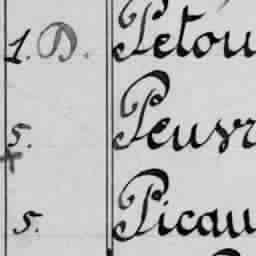 1. D. Petou
5. Peuvr
5. Picau